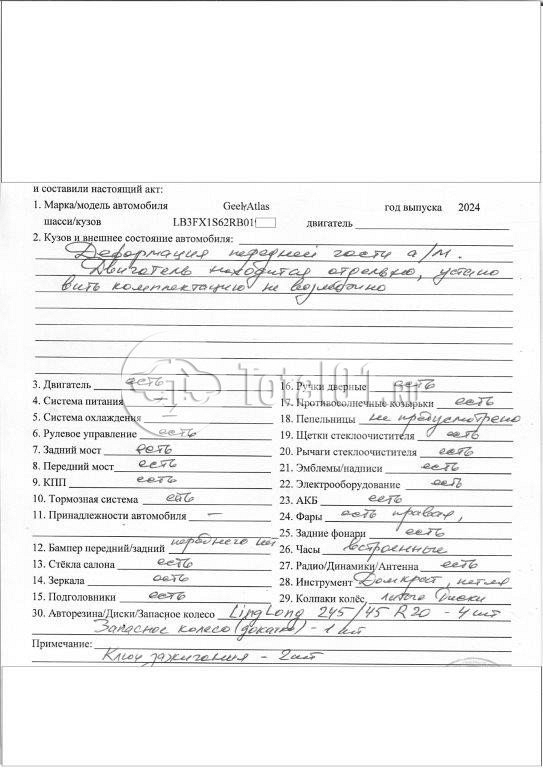 и составили настоящий акт:
1. Марка/модель автомобиля Geely Atlas год выпуска 2024
шасси/кузов LB3FX1S62RB01 двигатель
2. Кузов и внешнее состояние автомобиля:
Деформация передней части а/м.
Двигатель находится отдельно, устано
вить комплектацию не возможно
Total01.ru
3. Двигатель есть 16. Ручки дверные есть
4. Система питания — 17. Противосолнечные козырьки есть
5. Система охлаждения — 18. Пепельницы не предусмотрено
6. Рулевое управление есть 19. Щетки стеклоочистителя есть
7. Задний мост есть 20. Рычаги стеклоочистителя есть
8. Передний мост есть 21. Эмблемы/надписи есть
9. КПП есть 22. Электрооборудование есть
10. Тормозная система есть 23. АКБ есть
11. Принадлежности автомобиля — 24. Фары есть правая,
25. Задние фонари есть
12. Бампер передний/задний переднего нет 26. Часы встроенные
13. Стёкла салона есть 27. Радио/Динамики/Антенна есть
14. Зеркала есть 28. Инструмент Домкрат, петля
15. Подголовники есть 29. Колпаки колёс литые диски
30. Авторезина/Диски/Запасное колесо LingLong 245/45 R20 - 4 шт
Запасное колесо (докатка) - 1 шт
Примечание:
Ключ зажигания - 2шт